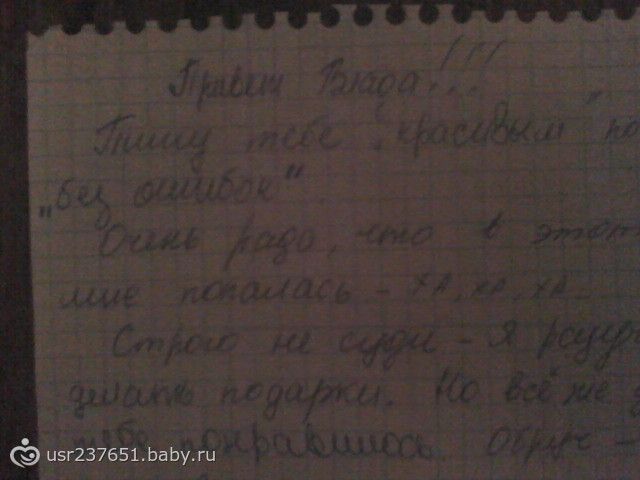 Привет Влада!!!
Пишу тебе „красивым" по
„без ошибок"
Очень рада, что в этот
мне попалась - ХА, ХА, ХА.
Строго не суди - я
делать подарки. Но всё же
тебе понравилось. Обруч -
usr237651.baby.ru